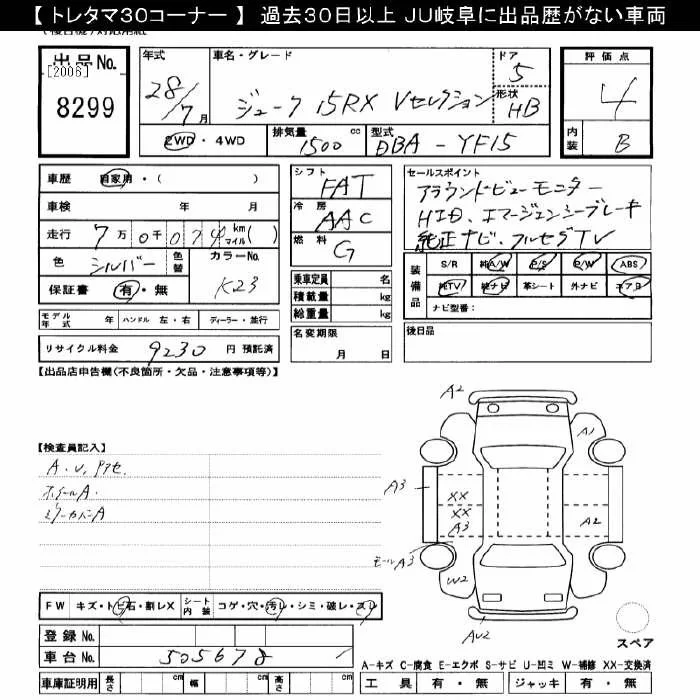 【トレタマ30コーナー】過去30日以上 JU岐阜に出品歴がない車両
出品No. [2006] 8299
年式 28/7月
車名・グレード ジューク 15RX Vセレクション
ドア 5
形状 HB
評価点 4
内装 B
2WD・4WD
排気量 1500 cc
型式 DBA-YF15
車歴 自家用・( )
車検 年 月
走行 7万0千074 km マイル( )
色 シルバー 色替 カラーNo. K23
保証書 有・無
シフト FAT
冷房 AAC
燃料 G
乗車定員 名
積載量 kg
総重量 kg
セールスポイント
アラウンドビューモニター
HID、エマージェンシーブレーキ
純正ナビ、フルセグTV
装備品 S/R 純A/W P/S P/W ABS
純TV 純ナビ 革シート 外ナビ エアB
ナビ型番:
モデル年式 年 ハンドル 左・右 ディーラー・並行
名変期限 月 日
後日品
リサイクル料金 9230 円 預託済
【出品店申告欄(不良箇所・欠品・注意事項等)】
【検査員記入】
A.U.
ホイールA.
ミラーカバーA
A2
A1
A3
XX
XX
A3
A2
モールA3
W2
AU2
スペア
FW キズ・トビ石・割レX シート内装 コゲ・穴・汚レ・シミ・破レ・スレ
登録No.
車台No. 505678
車庫証明用 長さ cm 幅 cm 高さ cm
A-キズ C-腐食 E-エクボ S-サビ U-凹ミ W-補修 XX-交換済
工具 有・無 ジャッキ 有・無